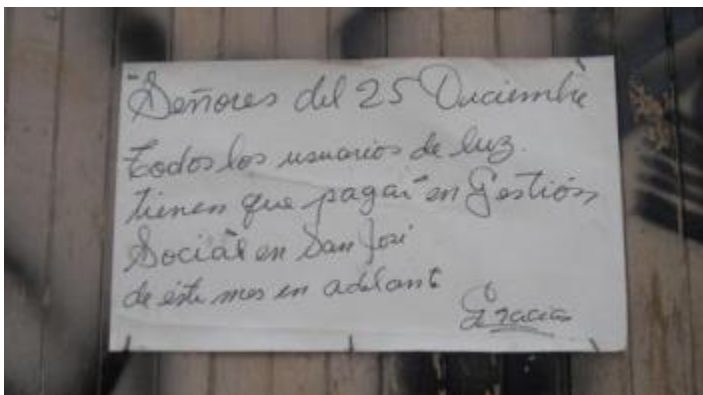 Señores del 25 Diciembre
Todos los usuarios de luz.
tienen que pagar en Gestión
Social en San José
de éste mes en adelante
Gracias